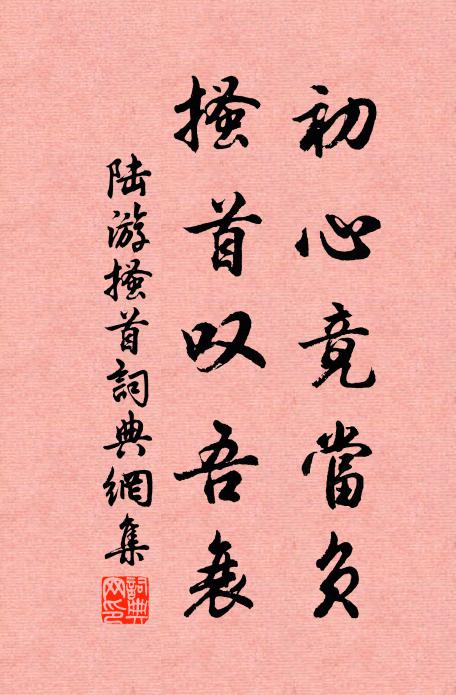 初心竟當負
搔首叹吾衰
陆游搔首詞典網集
詞典网印